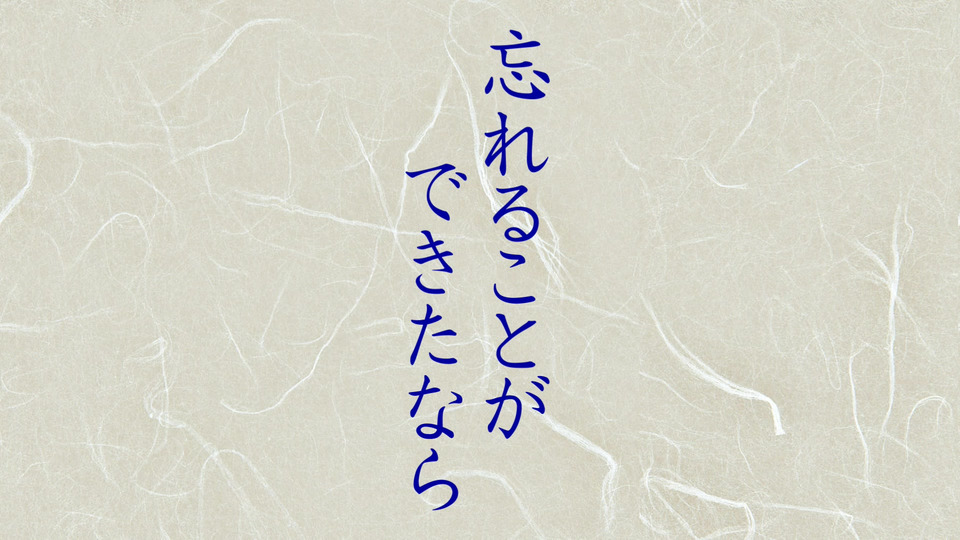 忘れることが
できたなら